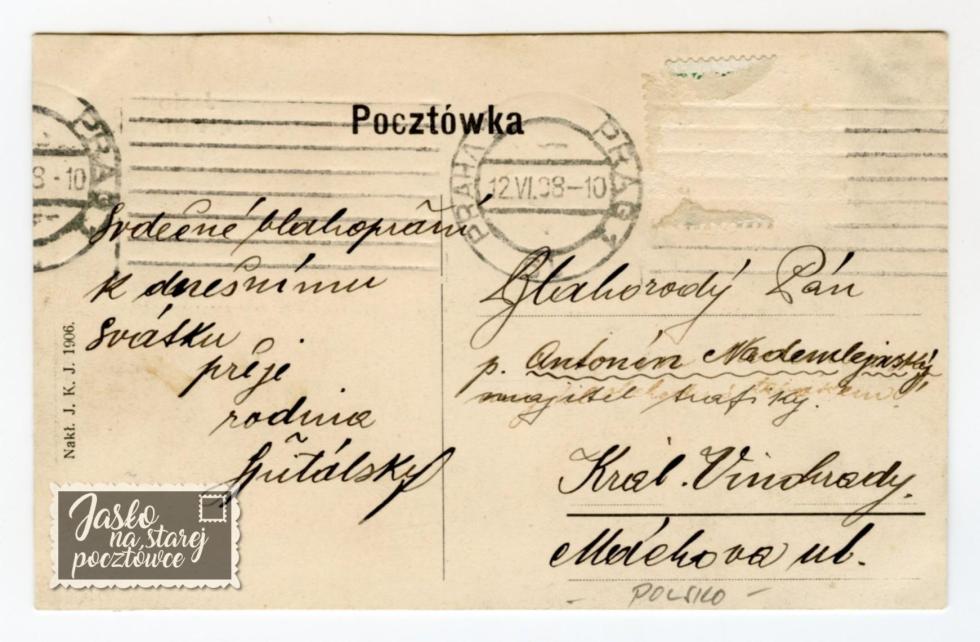 Pocztówka
PRAG
8-10
PRAHA PRAG
12.VI.08-10
Srdečné blahopřání
k dnešnímu
svátku
přeje
rodina
Blahorodý Pán
p. Antonín
majitel trafiky.
Král. Vinohrady.
Máchova ul.
POLSKO
Nakł. J. K. J. 1906.
Jasło
na starej
pocztówce